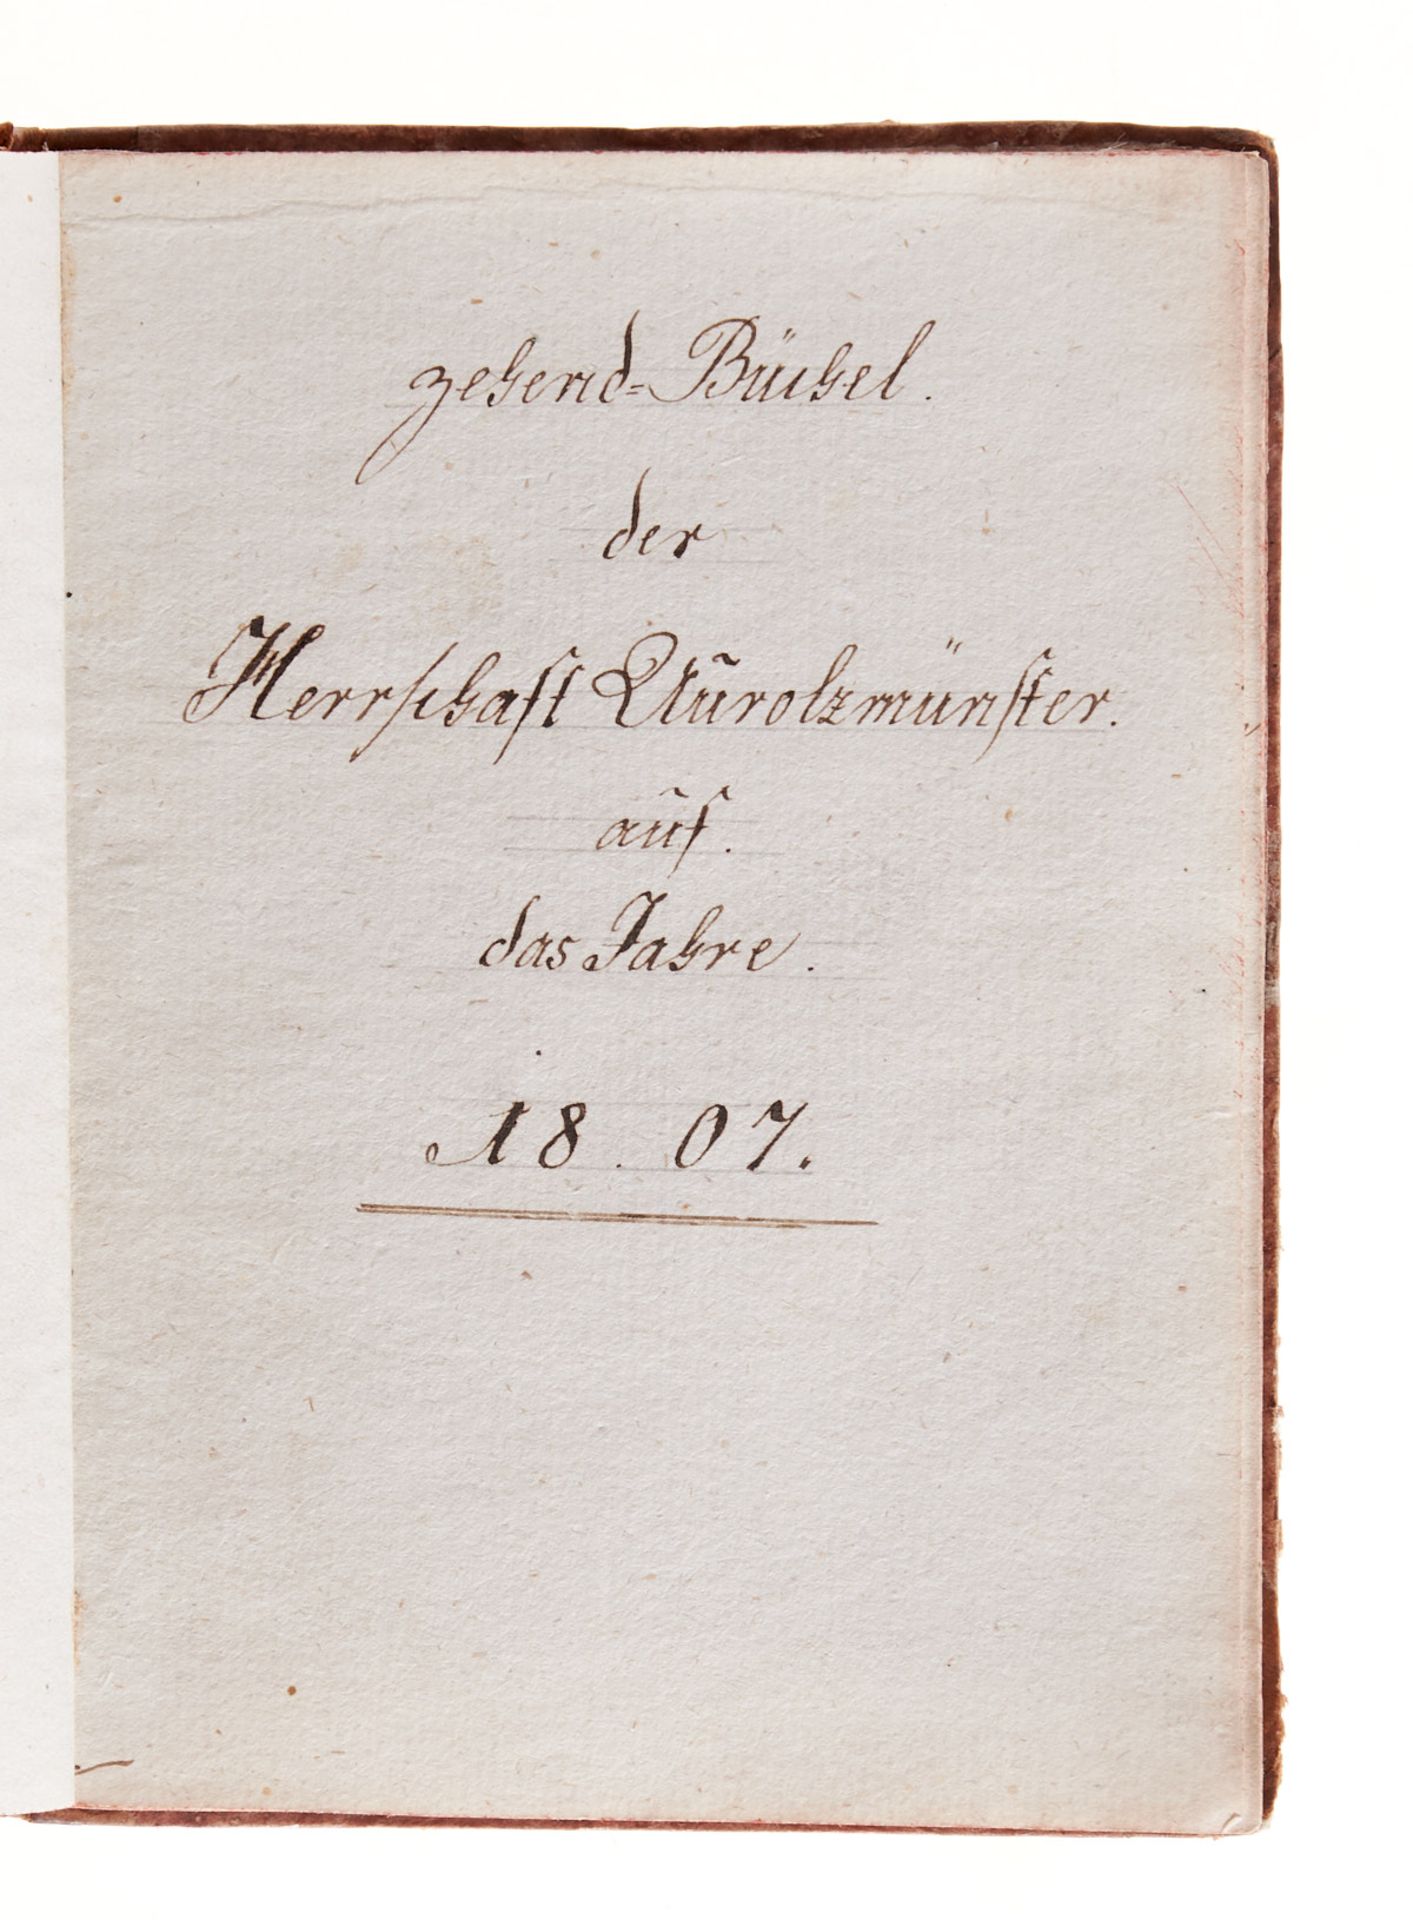 Zehend=Büchel.
der
Herrschaft Aurolzmünster.
auf.
das Jahre.
18.07.